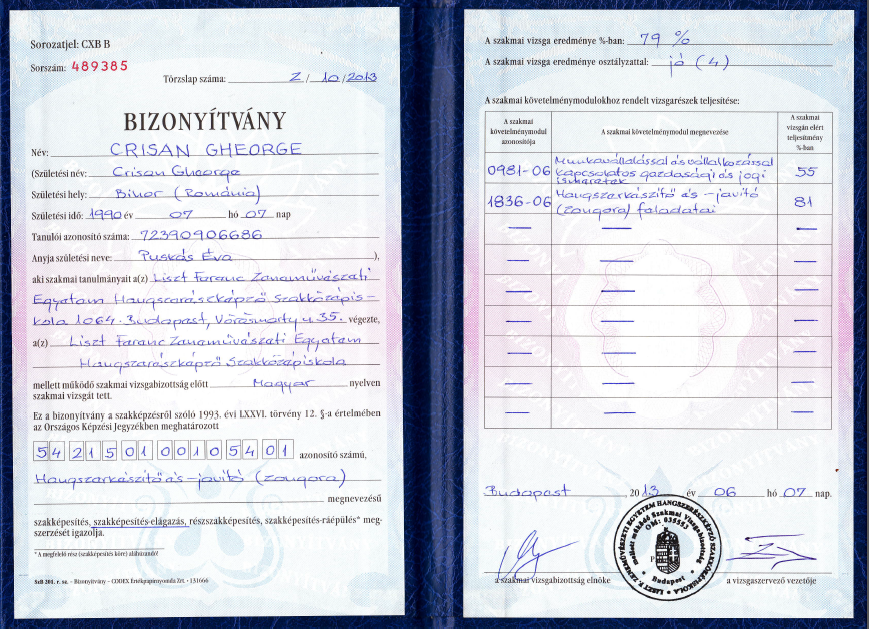 Sorozatjel: CXB B
Sorszám: 489385
Törzslap száma: Z/10/2013
BIZONYÍTVÁNY
Név: CRISAN GHEORGE
(Születési név: Crisan Gheorge
Születési hely: Bihor (Románia)
Születési idő: 1990 év 07 hó 07 nap
Tanulói azonosító száma: 72390906686
Anyja születési neve: Puskás Éva ),
aki szakmai tanulmányait a(z) Liszt Ferenc Zeneművészeti
Egyetem Hangszerészképző Szakközépis-
kola 1064. Budapest, Vörösmarty u. 35. végezte,
a(z) Liszt Ferenc Zeneművészeti Egyetem
Hangszerészképző Szakközépiskola
mellett működő szakmai vizsgabizottság előtt Magyar nyelven
szakmai vizsgát tett.
Ez a bizonyítvány a szakképzésről szóló 1993. évi LXXVI. törvény 12. §-a értelmében
az Országos Képzési Jegyzékben meghatározott
54 215 01 0010 54 01 azonosító számú,
Hangszerkészítő és -javító (zongora)
megnevezésű
szakképesítés, szakképesítés-elágazás, részszakképesítés, szakképesítés-ráépülés* meg-
szerzését igazolja.
* A megfelelő rész (szakképesítés köre) aláhúzandó!
SzB 201. r. sz. - Bizonyítvány - CODEX Értékpapírnyomda Zrt. - 131666
A szakmai vizsga eredménye %-ban: 79 %
A szakmai vizsga eredménye osztályzattal: jó (4)
A szakmai követelménymodulokhoz rendelt vizsgarészek teljesítése:
A szakmai követelménymodul azonosítója
A szakmai követelménymodul megnevezése
A szakmai vizsgán elért teljesítmény %-ban
0981-06 Munkavállalással és vállalkozással kapcsolatos gazdasági és jogi ismeretek 55
1836-06 Hangszerkészítő és -javító (zongora) feladatai 81
Budapest, 2013 év 06 hó 07 nap.
a szakmai vizsgabizottság elnöke
a vizsgaszervező vezetője
LISZT F. ZENEMŰVÉSZETI EGYETEM HANGSZERÉSZKÉPZŐ SZAKKÖZÉPISKOLA
mellett működő Szakmai Vizsgabizottság
OM: 035553
Budapest